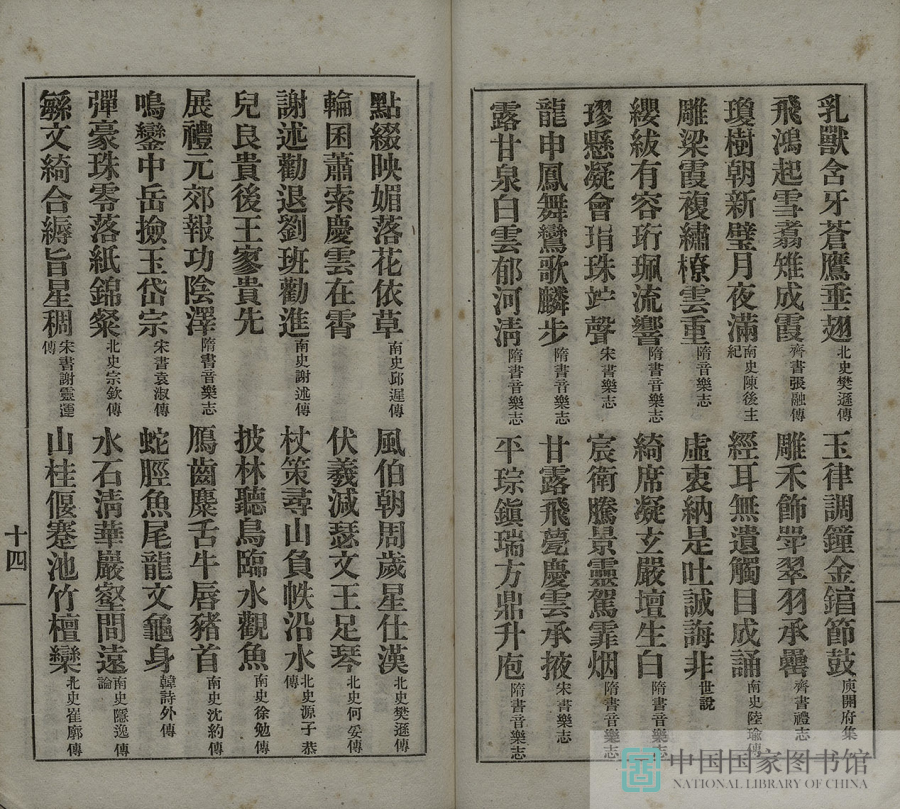 乳獸含牙蒼鷹垂翅北史樊遜傳 玉律調鐘金錞節鼓庾開府集
飛鴻起雪翥雉成霞齊書張融傳 雕禾飾斝翠羽承罍齊書禮志
瓊樹朝新璧月夜滿南史陳後主紀 經耳無遺觸目成誦南史陸瑜傳
雕梁霞複繡橑雲重隋音樂志 虛衷納是吐誠誨非世說
纓紱有容珩珮流響隋書音樂志 綺席凝玄嚴壇生白隋書音樂志
璆懸凝會珝珠竚聲宋書樂志 宸衛騰景靈駕霏烟隋書音樂志
龍申鳳舞鸞歌麟步隋書音樂志 甘露飛甍慶雲承掖宋書樂志
露甘泉白雲郁河清隋書音樂志 平琮鎭瑞方鼎升庖隋書音樂志
點綴映媚落花依草南史邱遲傳 風伯朝周歲星仕漢北史樊遜傳
輪囷蕭索慶雲在霄 伏羲減瑟文王足琴北史何妥傳
謝述勸退劉班勸進南史謝述傳 杖策尋山負帙沿水北史源子恭傳
兒良貴後王寥貴先 披林聽鳥臨水觀魚南史徐勉傳
展禮元郊報功陰澤隋書音樂志 鴈齒麋舌牛唇豬首南史沈約傳
鳴鑾中岳撿玉岱宗宋書袁淑傳 蛇脛魚尾龍文龜身韓詩外傳
彈豪珠零落紙錦粲北史宗欽傳 水石清華巖壑間遠南史隱逸傳論
緐文綺合縟旨星稠宋書謝靈運傳 山桂偃蹇池竹檀欒北史崔廓傳
十四
中国国家图书馆
NATIONAL LIBRARY OF CHINA